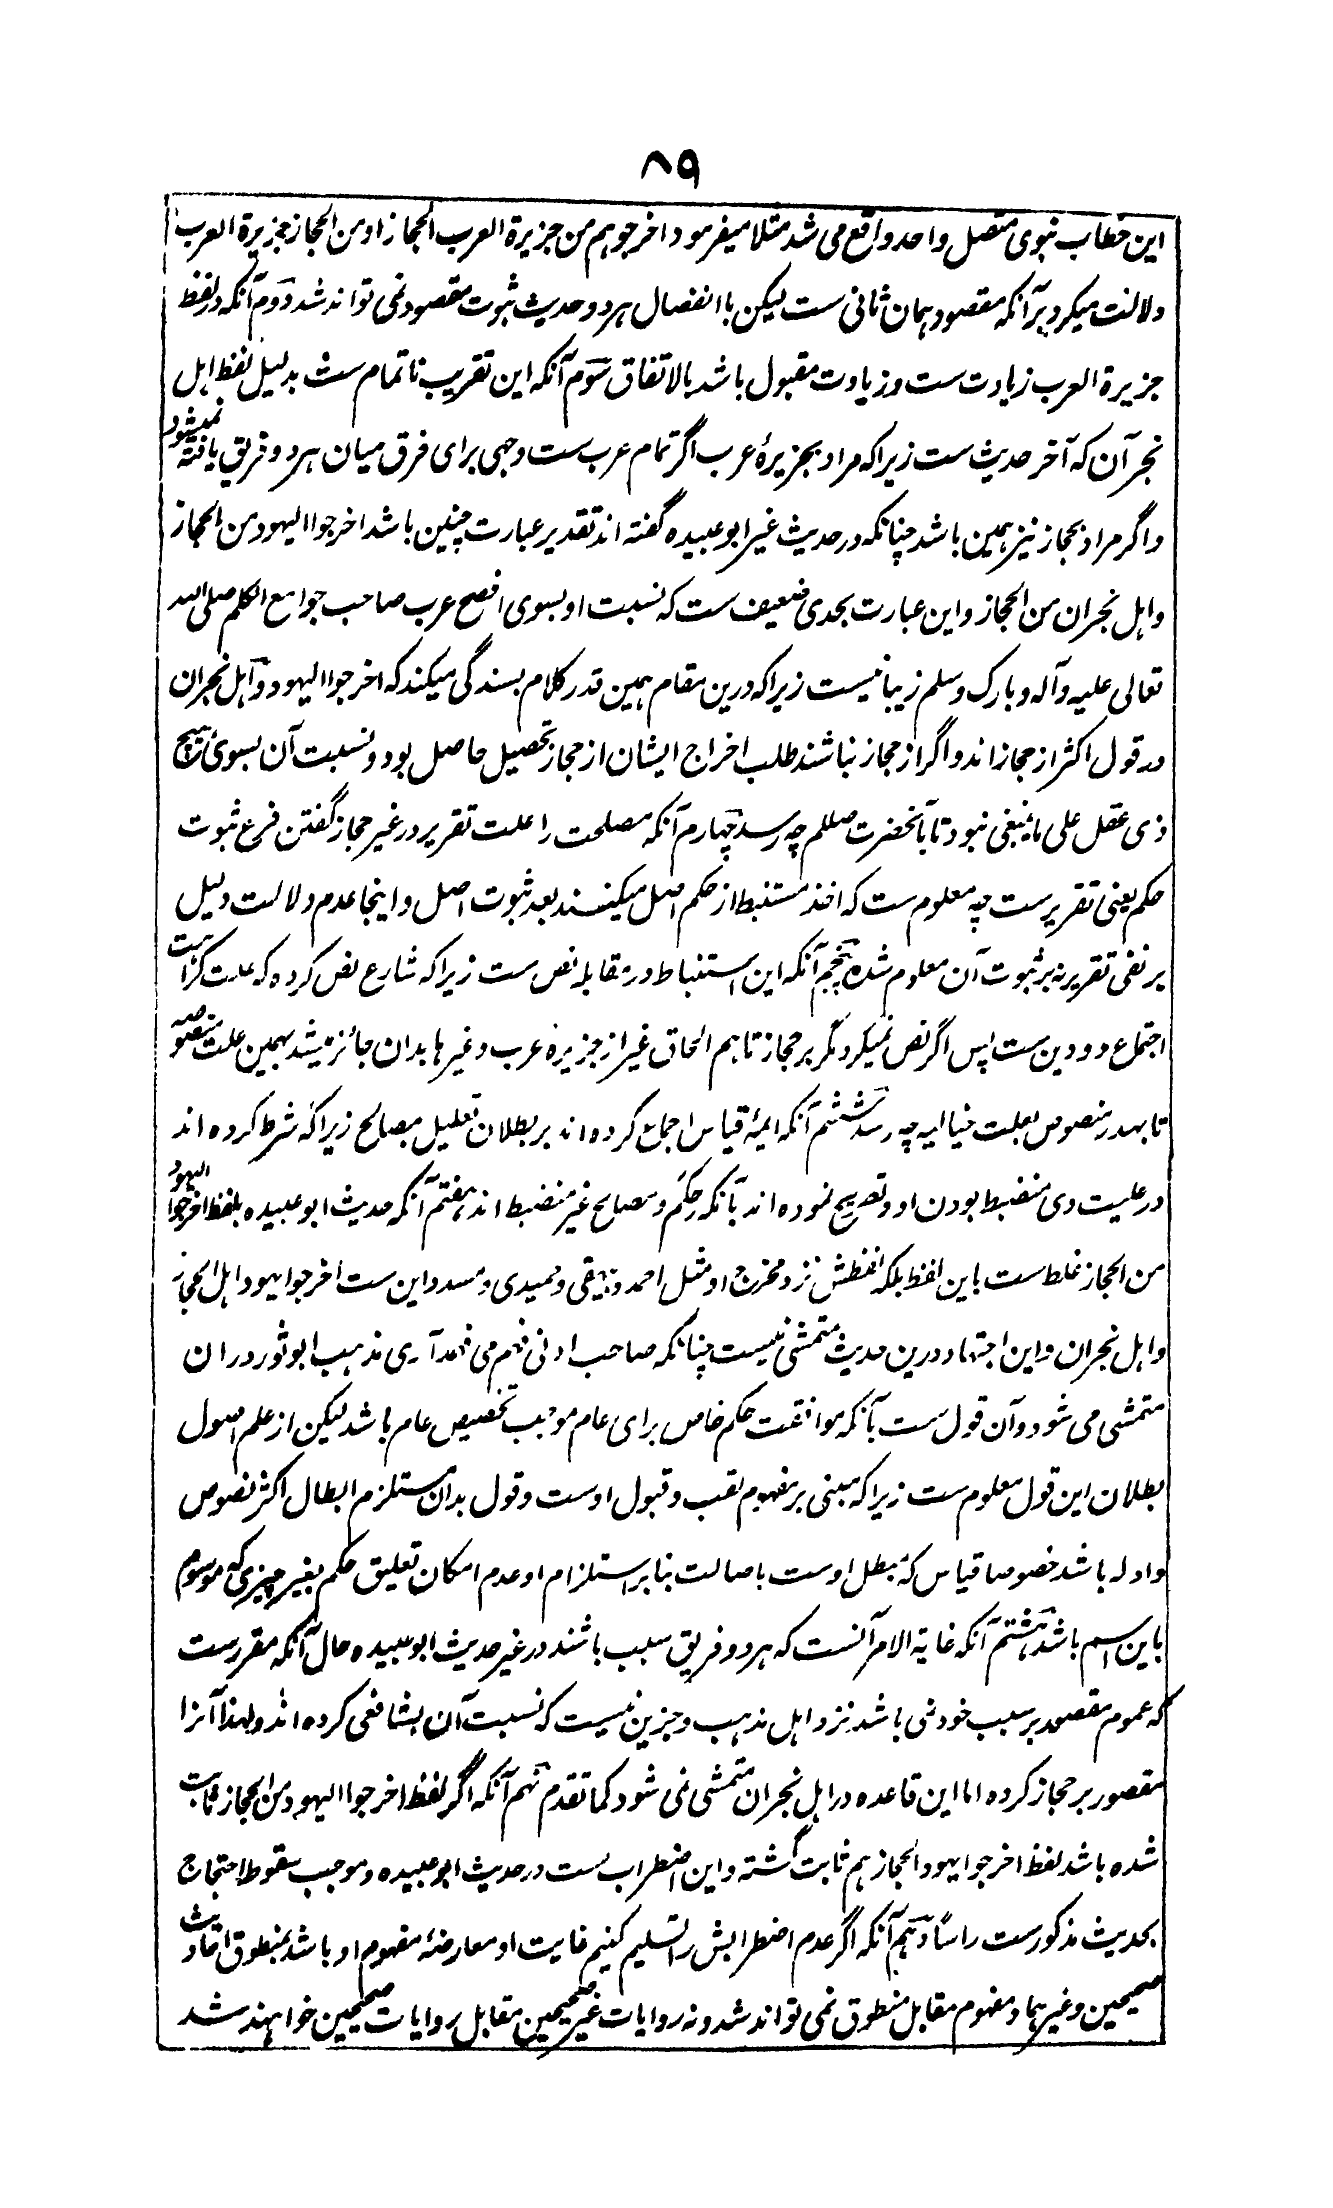 ۸۹
این خطاب نبوی متصل واحد واقع می شد مثلا میفرمود اخرجوهم من جزیرة العرب الحجاز او من الحجاز جزیرة العرب
دلالت میکرد برآنکه مقصود همان ثانی ست لیکن با انفصال هر دو حدیث ثبوت مقصود نمی تواند شد دوم آنکه در لفظ
جزیرة العرب زیادت ست و زیادت مقبول باشد بالاتفاق سوم آنکه این تقریب ناتمام ست بدلیل لفظ اهل
نجران که آخر حدیث ست زیرا که مراد بجزیرهٔ عرب اگر تمام عرب ست وجهی برای فرق میان هر دو فریق یافته نمیشود
و اگر مراد بحجاز نیز همین باشد چنانکه در حدیث غیر ابو عبیده گفته اند تقدیر عبارت چنین باشد اخرجوا الیهود من الحجاز
و اهل نجران من الحجاز و این عبارت بحدی ضعیف ست که نسبت او بسوی افصح عرب صاحب جوامع الکلم صلی الله
تعالی علیه وآله و بارک وسلم زیبا نیست زیرا که درین مقام همین قدر کلام بسندگی میکند که اخرجوا الیهود و اهل نجران
در قول اکثر از حجاز اند و اگر از حجاز نباشند طلب اخراج ایشان از حجاز تحصیل حاصل بود و نسبت آن بسوی هیچ
ذی عقل علی ما ینبغی نبود تا بآنحضرت صللم چه رسد چهارم آنکه مصلحت را علت تقریر در غیر حجاز گفتن فرع ثبوت
حکم یعنی تقریر ست چه معلوم ست که اخذ مستنبط از حکم اصل میکنند بعد ثبوت اصل و اینجا عدم دلالت دلیل
بر نفی تقریر نه بر ثبوت آن معلوم شده پنجم آنکه این استنباط در مقابله نص ست زیرا که شارع نص کرده که علت کراهت
اجتماع دو دین ست پس اگر نص نمیکرد مگر بر حجاز تا هم الحاق غیر از جزیره عرب و غیرها بدان جائز میشد بهمین علت منصوصه
تا بهدر منصوص بعلت خیالیه چه رسد ششم آنکه ایمهٔ قیاس اجماع کرده اند بر بطلان تعلیل بمصالح زیرا که شرط کرده اند
در علیت وی منضبط بودن او و تصریح نموده اند بآنکه حِکَم و مصالح غیر منضبط اند هفتم آنکه حدیث ابو عبیده بلفظ اخرجوا الیهود
من الحجاز غلط ست باین لفظ بلکه لفظش نزد مخرج او مثل احمد و بیهقی و حمیدی و مسدد این ست اخرجوا یهود اهل الحجاز
و اهل نجران و این اجتهاد درین حدیث متمشی نیست چنانکه صاحب ادنی فهم می فهمد آری مذهب ابو ثور دران
متمشی می شود و آن قول ست بآنکه موافقت حکم خاص برای عام موجب تخصیص عام باشد لیکن از علم اصول
بطلان این قول معلوم ست زیرا که مبنی بر مفهوم لقب و قبول اوست و قول بدان مستلزم ابطال اکثر نصوص
و ادله باشد خصوصا قیاس که مبطل اوست باصالت بنابر استلزام او عدم امکان تعلیق حکم بغیر چیزی که موسوم
باین اسم باشد هشتم آنکه غایة الامر آنست که هر دو فریق سبب باشند در غیر حدیث ابو عبیده حال آنکه مقرر ست
که عموم مقصور بر سبب خود نمی باشد نزد اهل مذهب و جزین نیست که نسبت آن بشافعی کرده اند و لهذا آنرا
مقصور بر حجاز کرده اما این قاعده در اهل نجران متمشی نمی شود کما تقدم نهم آنکه اگر لفظ اخرجوا الیهود من الحجاز ثابت
شده باشد لفظ اخرجوا یهود الحجاز هم ثابت گشته و این اضطراب ست در حدیث ابو عبیده و موجب سقوط احتجاج
بحدیث مذکور ست راساً دهم آنکه اگر عدم اضطرابش را تسلیم کنیم غایت او معارضهٔ مفهوم او باشد بمنطوق احادیث
صحیحین و غیرهما و مفهوم مقابل منطوق نمی تواند شد و نه روایات غیر صحیحین مقابل روایات صحیحین خواهند شد